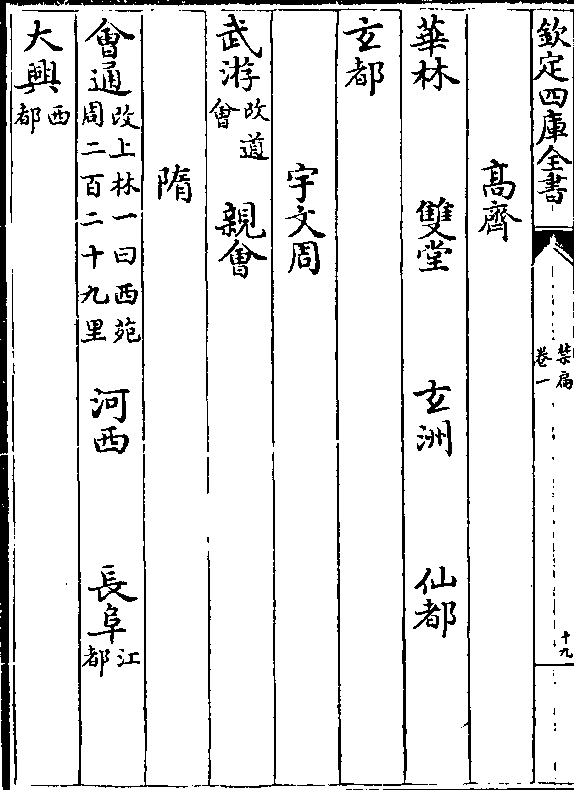 欽定四庫全書
禁扁
卷一
十九
高齊
華林 雙堂 玄洲 仙都
玄都
宇文周
武游改道會 親會
隋
會通改上林一曰西苑周二百二十九里 河西 長阜江都
大興西都